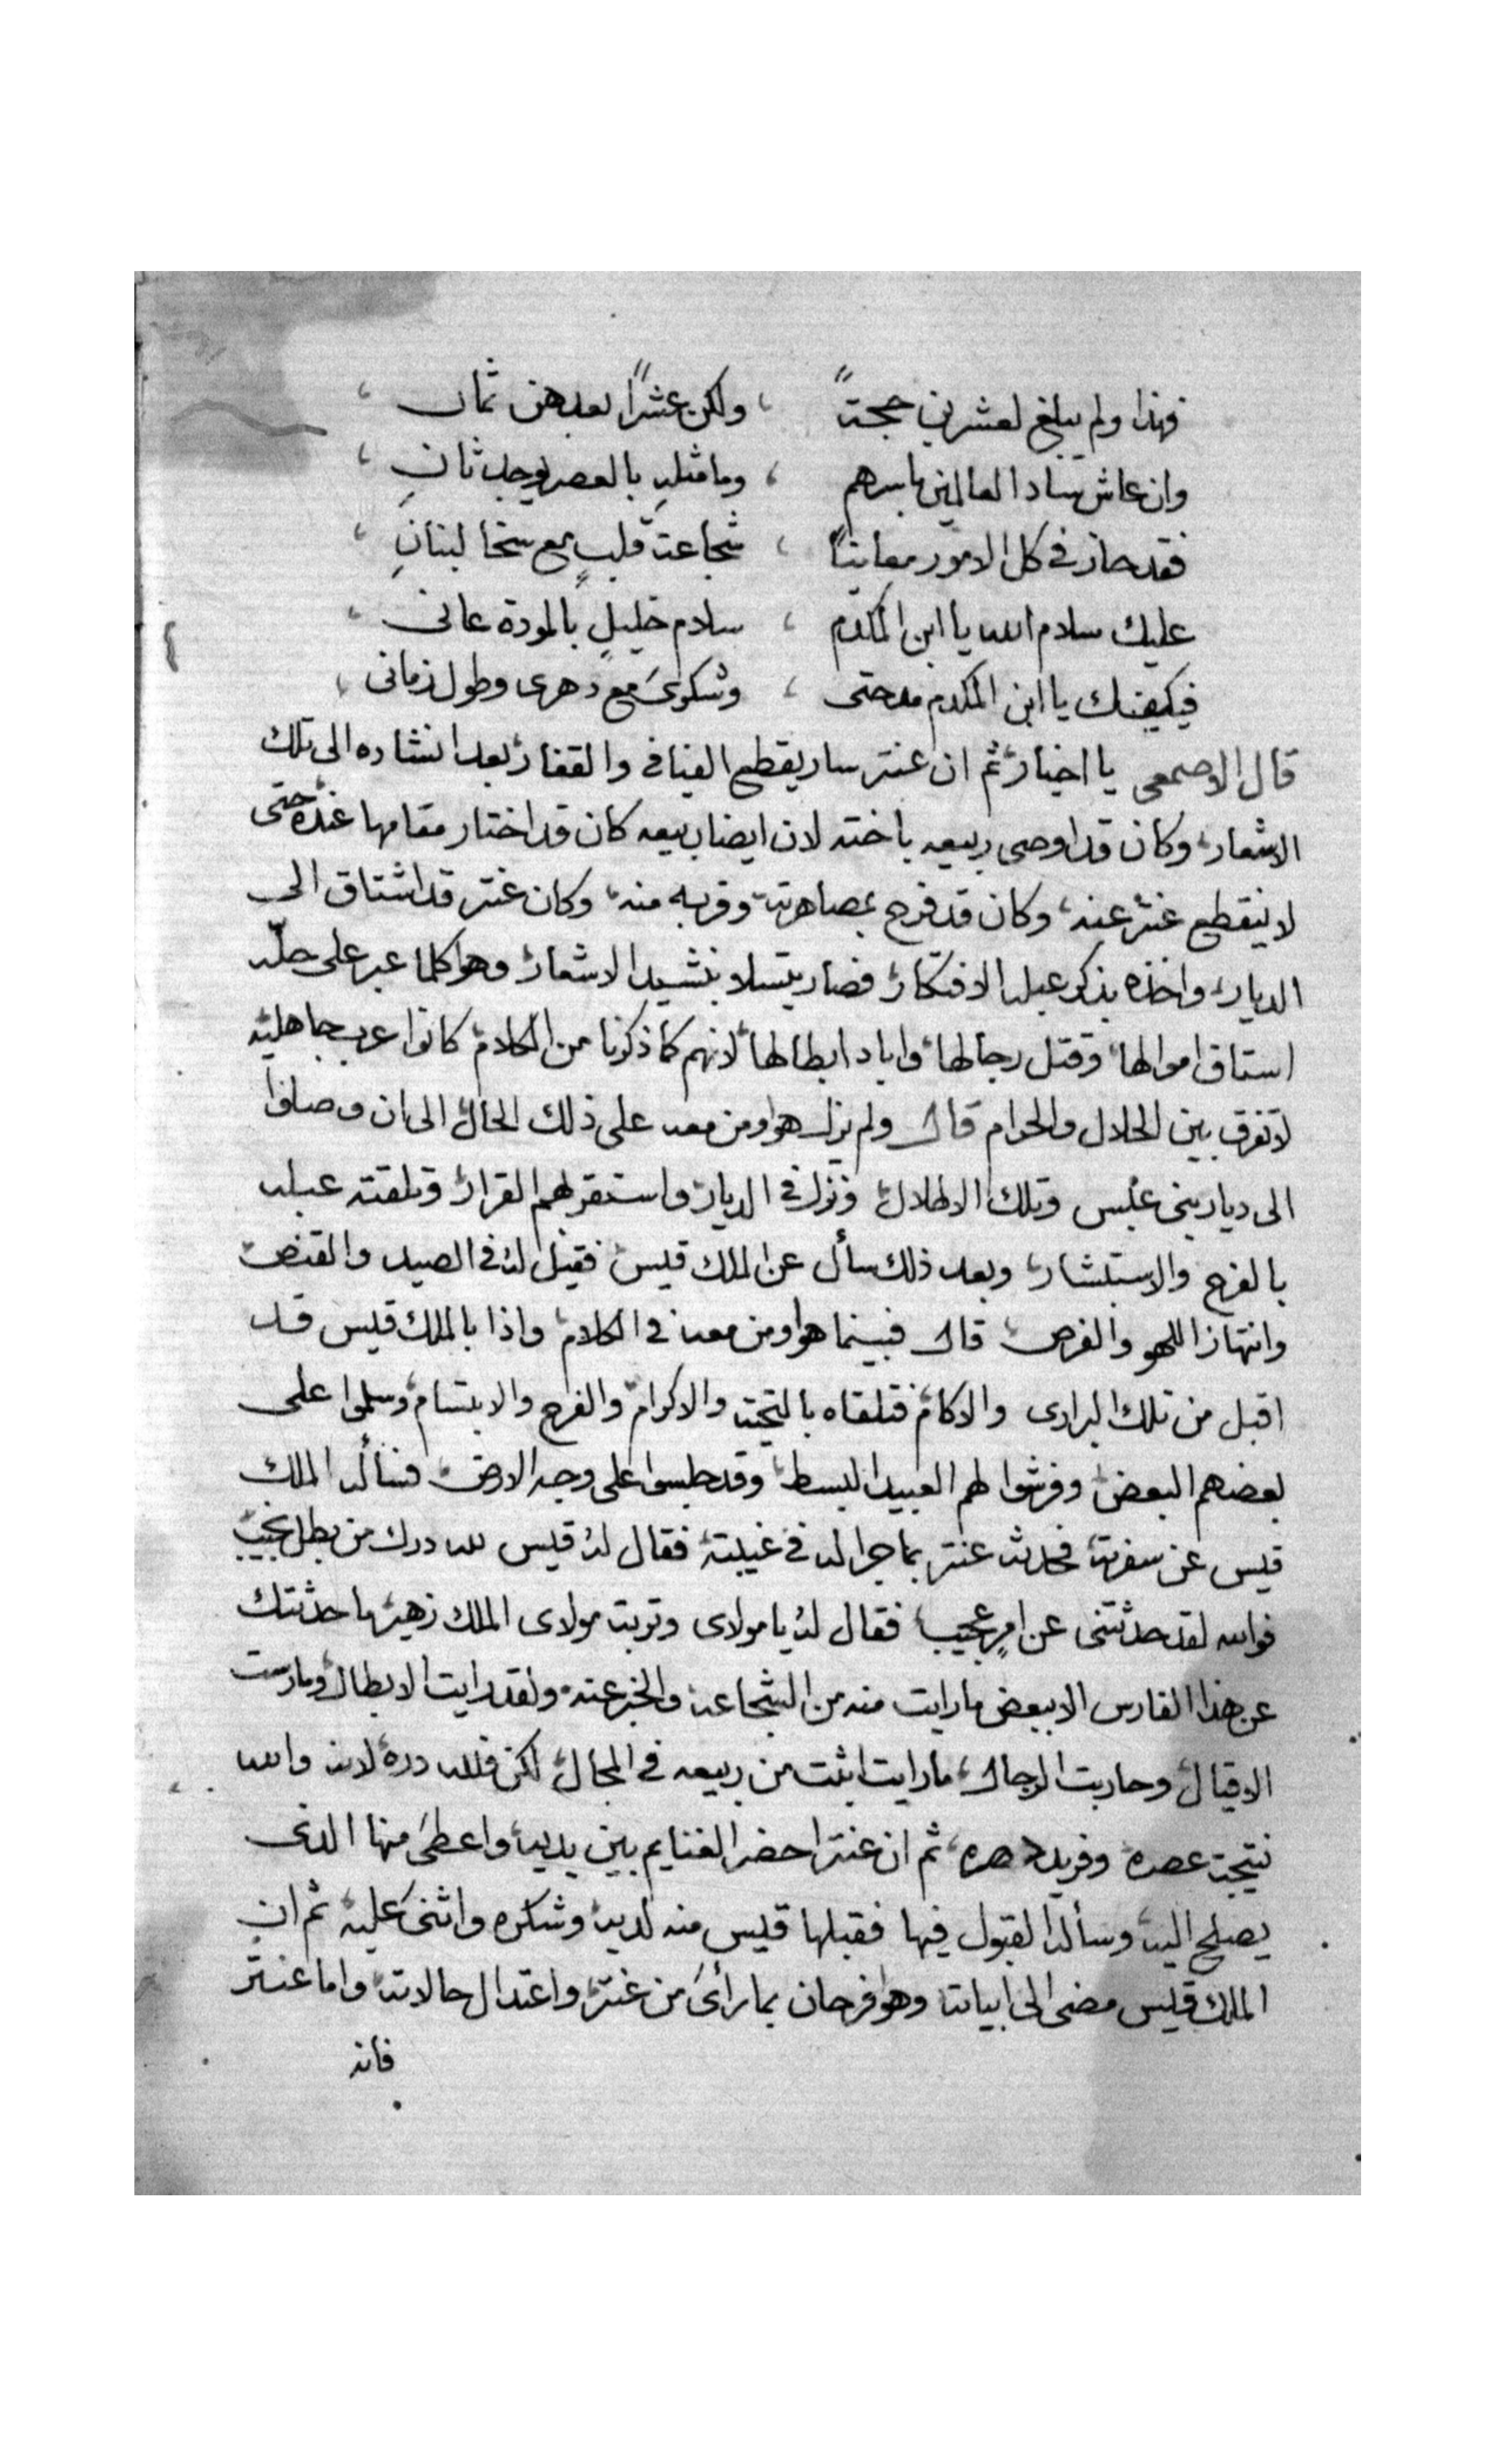 فهذا ولم يبلغ لعشرين حجةً ، ولكن عشرًا بعدهن ثمان ،
وان عاش ساد العالمين باسرهم ، وما مثله بالعصر يوجد ثانِ ،
فقد حاز في كل الامور معانيًا ، شجاعة قلبٍ مع سخا لبنانِ ،
عليك سلام الله يا ابن المكدم ، سلام خليلٍ بالمودة عانى ،
فيكفيك يا ابن المكدم مدحتى ، وشكوىَ مع دهرى وطول زمانى ،
قال الاصمعى يا اخيار ثم ان عنتر سار يقطع الفيافى والقفار بعد انشاده الى تلك
الاشعار، وكان قد اوصى ربيعه باخته لان ايضا ربيعه كان قد اختار مقامها عنده حتى
لا ينقطع عنتر عنه، وكان قد فرح بمصاهرته وقربه منه، وكان عنتر قد اشتاق الى
الديار، واخذه بذكر عبله الافتكار، فصار يتسلا بنشيد الاشعار، وهوا كلما عبر على حلّه
استاق اموالها، وقتل رجالها، واباد ابطالها، لانهم كما ذكرنا من الكلام، كانوا عرب جاهليه
لا تفرق بين الحلال والحرام قال ولم يزل هوا ومن معه على ذلك الحال، الى ان وصلوا
الى ديار بنى عبس وتلك الاطلال، ونزل فى الديار، واستقر لهم القرار، وتلقته عبله
بالفرح والاستبشار، وبعد ذلك سأل عن الملك قيس، فقيل له فى الصيد والقنص،
وانتهاز اللهو والفرص، قال فبينما هوا ومن معه فى الكلام، واذا بالملك قيس قد
اقبل من تلك البرارى والاكام، فتلقاه بالتحيه والاكرام، والفرح والابتسام، وسلموا على
بعضهم البعض، وفرشوا لهم العبيد البسط، وقد جلسوا على وجه الارض، فسأله الملك
قيس عن سفرته، فحدثه عنتر بما جرا له فى غيبته، فقال له قيس لله درك من بطل نجيب،
فوالله لقد حدثتنى عن امرٍ عجيب، فقال له يا مولاى وتربة مولاى الملك زهير، ما حدثتك
عن هذا الفارس الا ببعض ما رايت منه من الشجاعه والخبر عنه، ولقد رايت الابطال، ومارست
الاقيال، وحاربت الرجال، ما رايت اثبت من ربيعه فى المجال، لكن فلله دره، لانه والله
نتيجة عصره، وفريد دهره، ثم ان عنتر احضر الغنايم بين يديه، واعطىَ منها الذى
يصلح اليه، وسأله القبول فيها فقبلها قيس منه لديه، وشكره واثنىَ عليه، ثم ان
الملك قيس مضى الى ابياته وهوا فرحان بما رأىَ من عنتر، واعتدال حالاته، واما عنتر
فانه